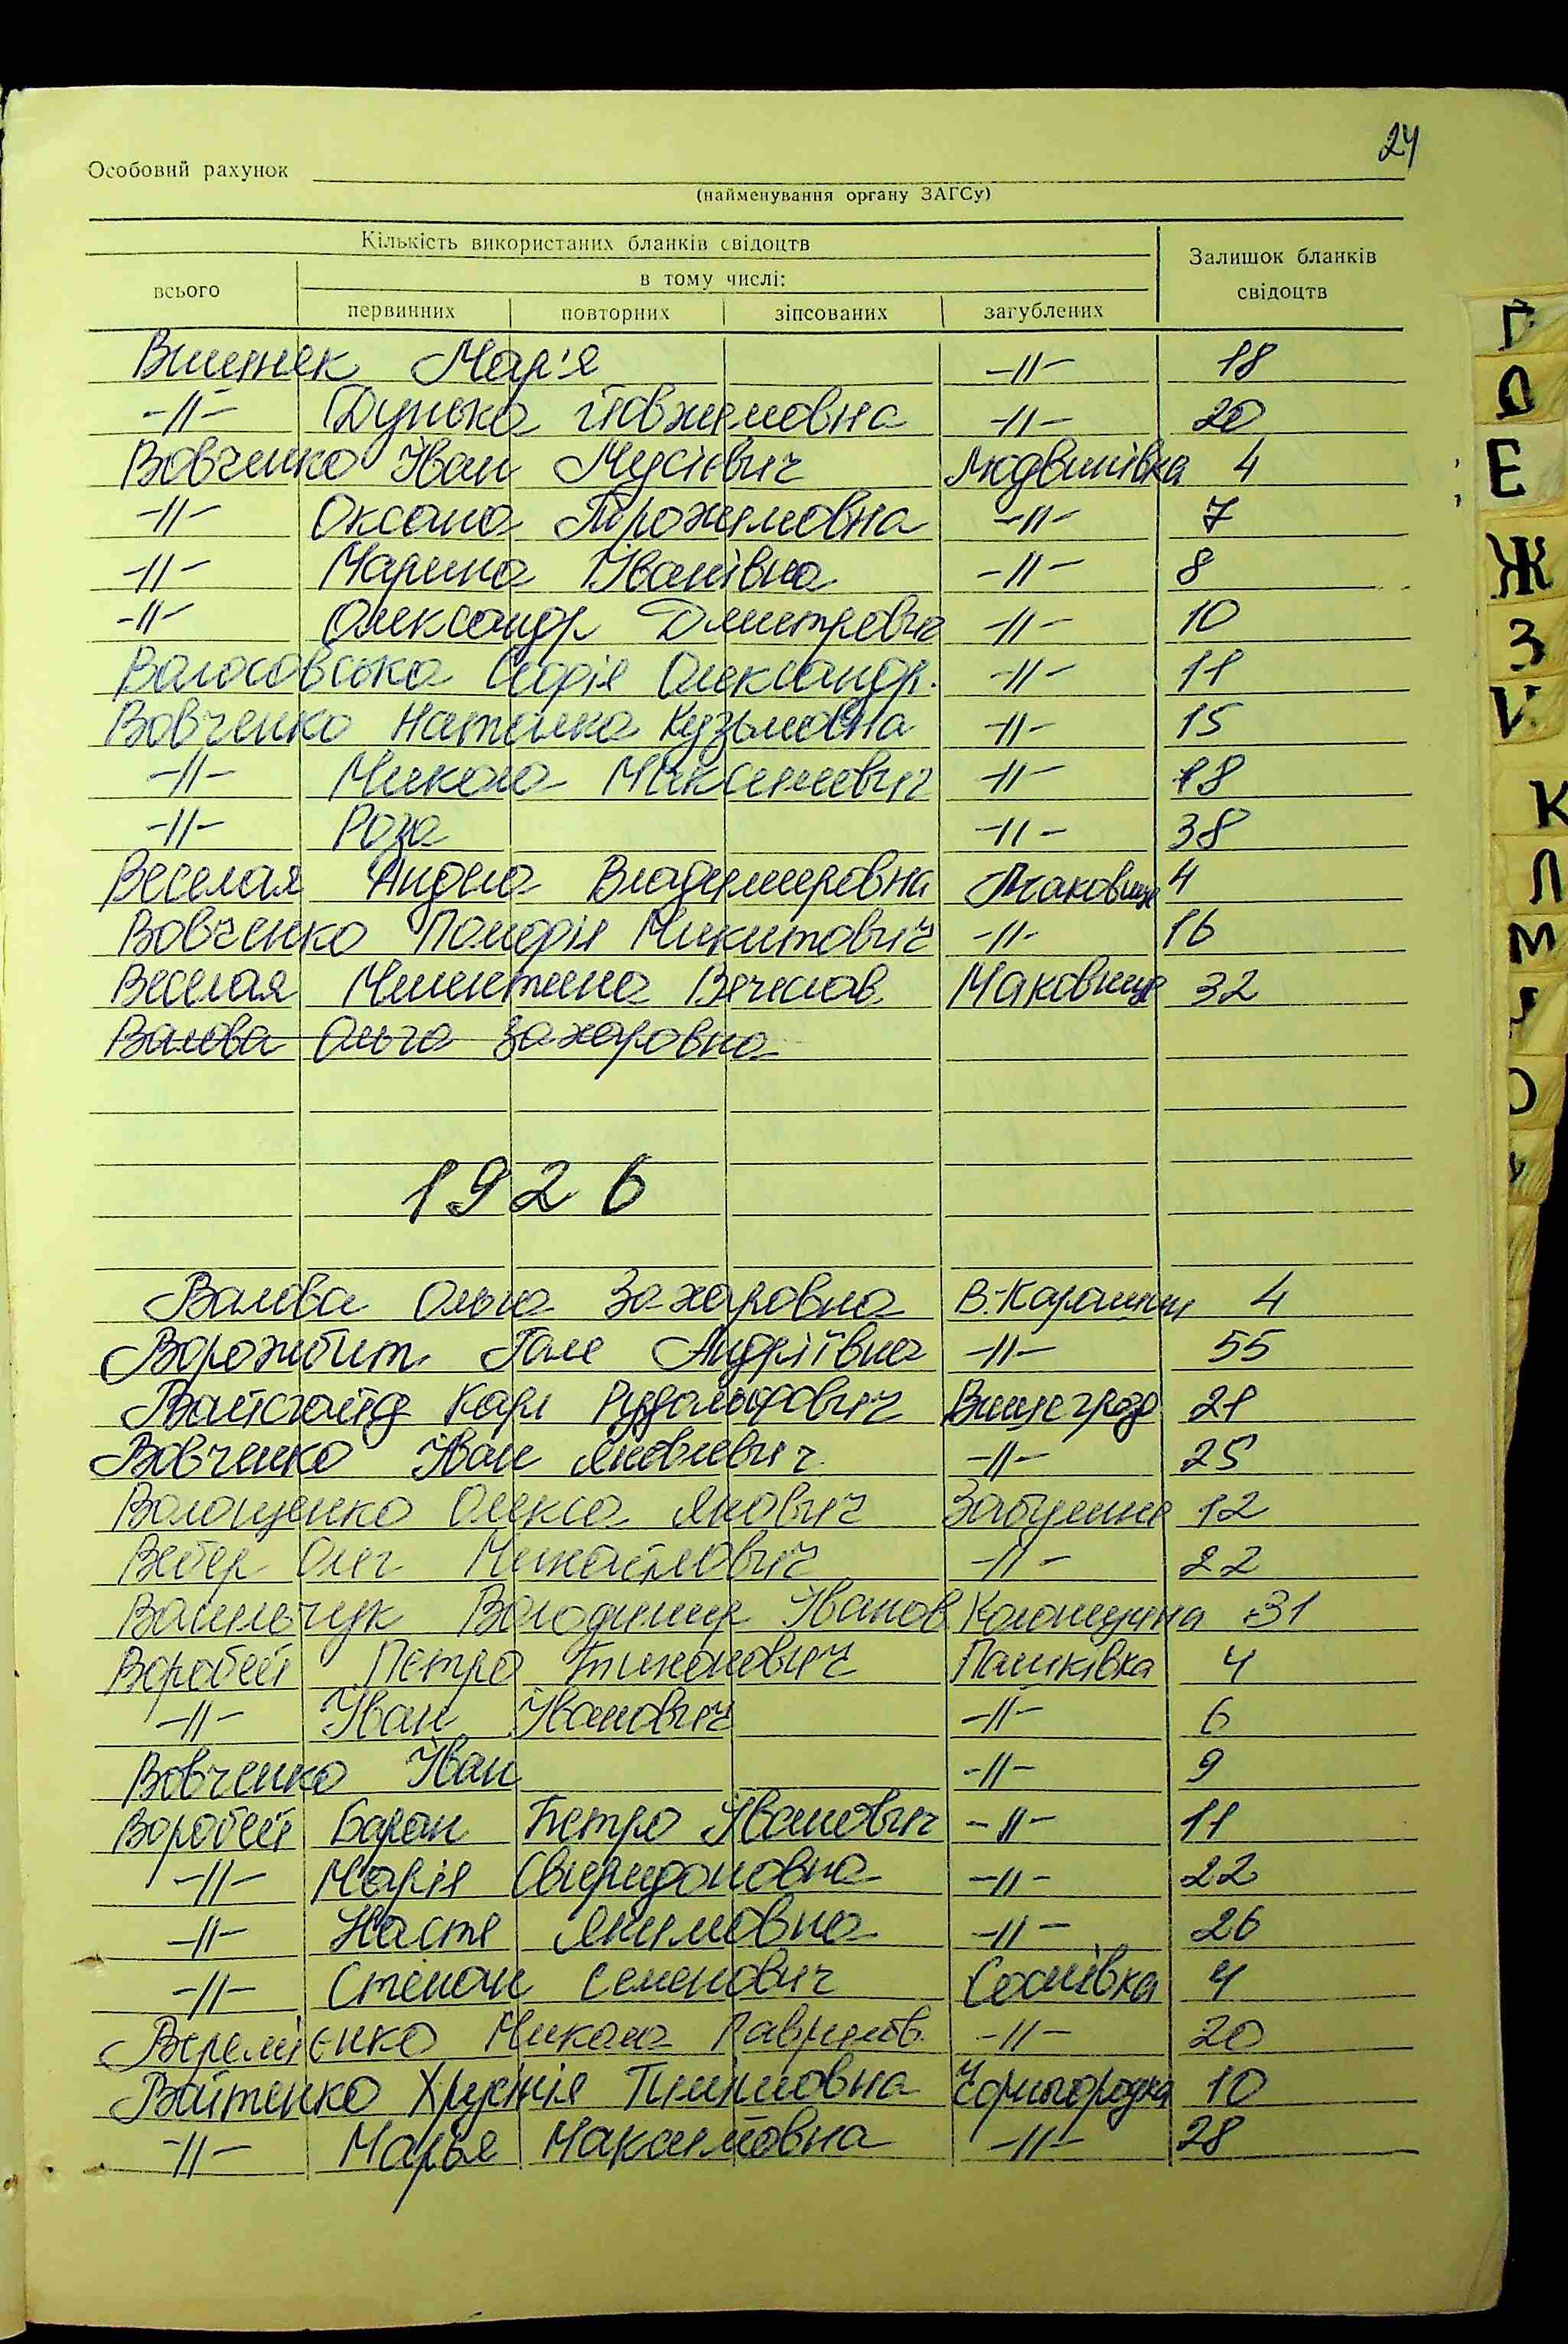 24
Особовий рахунок
(найменування органу ЗАГСу)
Кількість використаних бланків свідоцтв
Залишок бланків свідоцтв
всього
в тому числі:
первинних повторних зіпсованих загублених
Вишняк Мар'я -//- 18
-//- Дунька -//- 20
Вовченко Іван Мусієвич Людвинівка 4
-//- Оксана Трохимовна -//- 7
-//- Марина Іванівна -//- 8
-//- Олександр Дмитрович -//- 10
Волосовська Софія Олександр. -//- 11
Вовченко Наталка Кузьмовна -//- 15
-//- Микола Максимович -//- 18
-//- Роза -//- 38
Веселая Владимировна Маковище 4
Вовченко Микитович -//- 16
Веселая Вечеслав. Маковище 32
Валова Ольга Захаровна
1926
Валова Ольга Захаровна В.-Карашин 4
Ворожбит Галя Андріївна -//- 55
Вайсгайд Карл Рудольфович Вишеград 21
Вовченко Іван Яковлевич -//- 25
Волощенко Олекса Якович Забуяння 12
Вебер Олег Михайлович -//- 22
Васильчук Володимир Іванов Колонщина 31
Воробей Петро Тихонович Пашківка 4
-//- Іван Іванович -//- 6
Вовченко Іван -//- 9
Воробей Баран Петро Іванович -//- 11
-//- Марія Свиридоновна -//- 22
-//- Настя Якимовна -//- 26
-//- Степан Семенович Соснівка 4
Веремієнко Микола Гаврилов. -//- 20
Войтенко Хрустія Пилиповна Чорногородка 10
-//- Мар'я Максимовна -//- 28
Г
Д
Е
Ж
З
И
К
Л
М